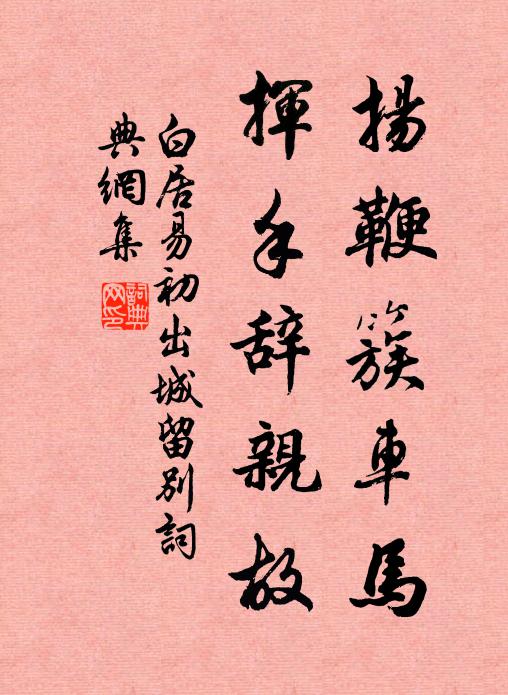 揚鞭簇車馬
揮手辞親故
白居易初出城留別詞
典網集
詞典网印